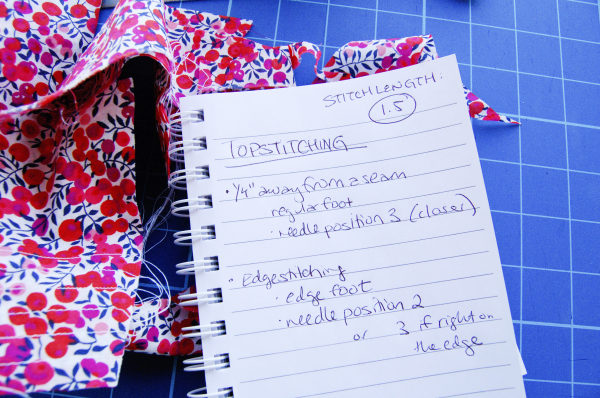 STITCH LENGTH:
1.5
TOPSTITCHING
• 1/4" away from a seam
regular foot
• needle position 3 (closer)
• Edgestitching
• edge foot
• needle position 2
or 3 if right on
the edge